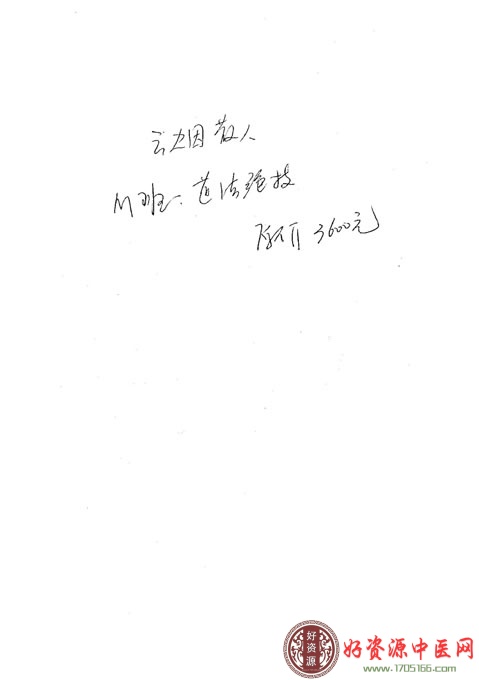 云烟散人
M班、道法强技
原价3600元
好资源
好资源中医网
www.1705166.com